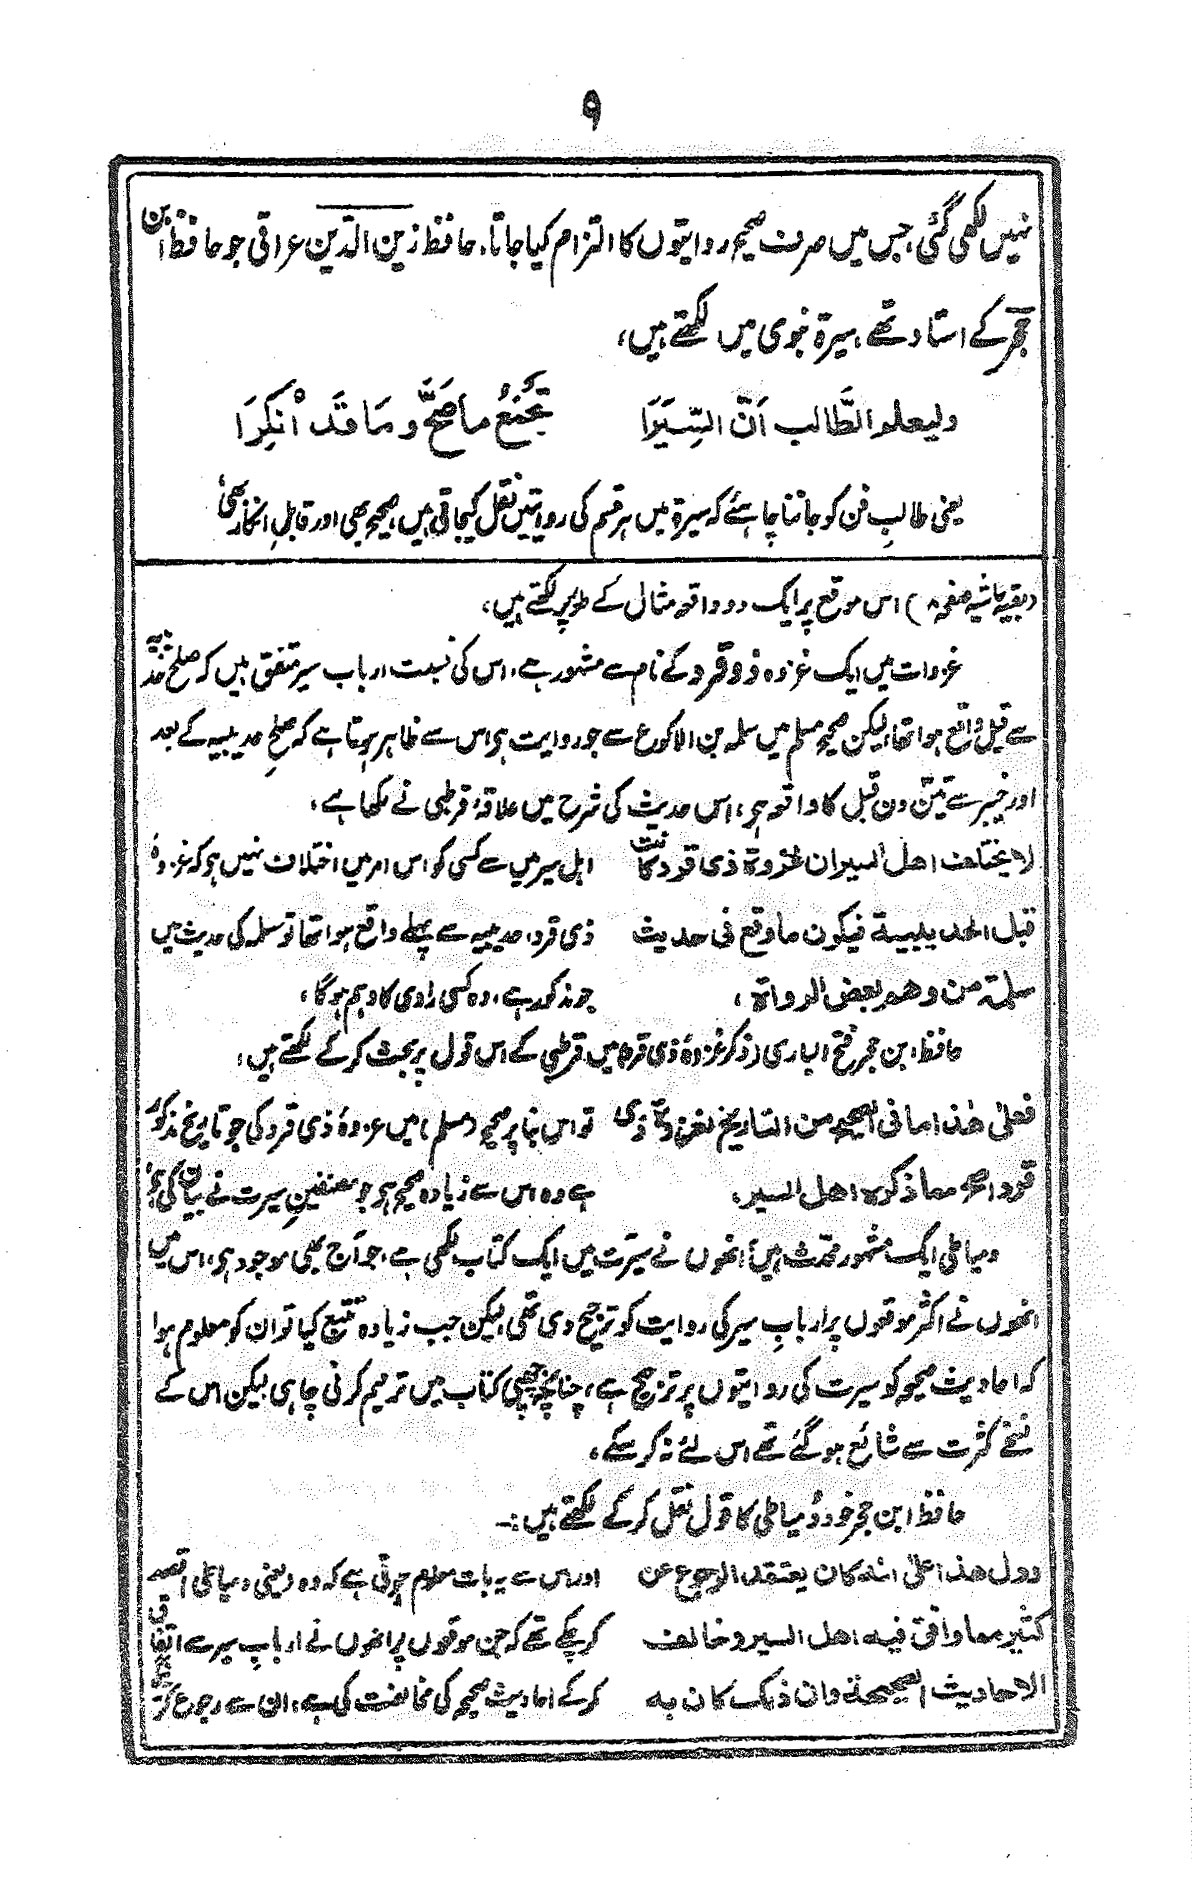 ۹
نہیں لکھی گئی، جس میں صرف صحیح روایتوں کا التزام کیا جاتا، حافظ زین الدین عراقی جو حافظ ابن
حجر کے استاد تھے، سیرۃ نبوی میں لکھتے ہیں،
ولیعلم الطَّالب اَنَّ السِّیَرَا تَجْمَعُ مَا صَحَّ وَمَا قَدْ اُنْکِرَا
یعنی طالبِ فن کو جاننا چاہئے کہ سیرۃ میں ہر قسم کی روایتیں نقل کیجاتی ہیں، صحیح بھی اور قابلِ انکار بھی
(بقیہ حاشیہ صفحہ ۸) اس موقع پر ایک دو واقعہ مثال کے طور پر لکھتے ہیں،
غزوات میں ایک غزوہ ذو قرد کے نام سے مشہور ہے، اس کی نسبت ارباب سیر متفق ہیں کہ صلح حدیبیہ
سے قبل واقع ہوا تھا، لیکن صحیح مسلم میں سلمہ بن الاکوع سے جو روایت ہو اس سے ظاہر ہوتا ہے کہ صلح حدیبیہ کے بعد
اور خیبر سے تین دن قبل کا واقعہ ہو، اس حدیث کی شرح میں علامۂ قرطبی نے لکھا ہے،
لا یختلف اھل السیر ان غزوۃ ذی قرد کانت اہل سیر میں سے کسی کو اس امر میں اختلاف نہیں ہو کہ غزوہ
قبل الحدیبیۃ فیکون ما وقع فی حدیث ذی قرد، حدیبیہ سے پہلے واقع ہوا تھا تو سلمہ کی حدیث میں
سلمۃ من وھم بعض الرواۃ، جو مذکور ہے، وہ کسی راوی کا وہم ہو گا،
حافظ ابن حجر فتح الباری (ذکر غزوہ ذی قرد) میں قرطبی کے اس قول پر بحث کر کے لکھتے ہیں،
فعلیٰ ھٰذا ما فی الصحیح من التاریخ لغزوۃ ذی تو اس بنا پر صحیح (مسلم) میں غزوۂ ذی قرد کی جو تاریخ مذکور
قرد اصح مما ذکرہ اھل السیر، ہے وہ اس سے زیادہ صحیح ہو جو مصنفینِ سیرت نے بیان کی ہو،
دمیاطی ایک مشہور محدث ہیں، انھوں نے سیرت میں ایک کتاب لکھی ہے، جو آج بھی موجود ہو، اس میں
انھوں نے اکثر موقعوں پر اربابِ سیر کی روایت کو ترجیح دی تھی، لیکن جب زیادہ تتبع کیا تو ان کو معلوم ہوا
کہ احادیث صحیحہ کو سیرت کی روایتوں پر ترجیح ہے، چنانچہ اپنی کتاب میں ترمیم کرنی چاہی لیکن اس کے
نسخے کثرت سے شائع ہو گئے تھے اس لئے نہ کر سکے،
حافظ ابن حجر خود دمیاطی کا قول نقل کر کے لکھتے ہیں:-
ودل ھذا علیٰ انہ کان یعتقد الرجوع عن اور اس سے یہ بات معلوم ہوتی ہے کہ وہ (یعنی دمیاطی) قصد
کثیر مما وافق فیہ اھل السیر وخالف کر چکے تھے کہ جن موقعوں پر انھوں نے اربابِ سیر سے اتفاق
الاحادیث الصحیحۃ وان ذلک کان بہ کر کے احادیث صحیحہ کی مخالفت کی ہے، ان سے رجوع کرتے